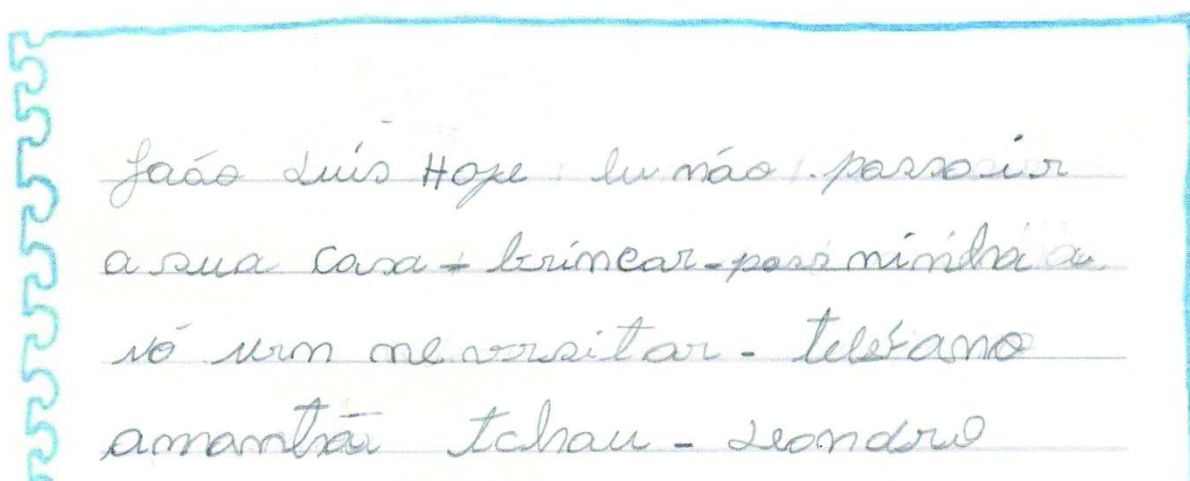 João Luís Hoje eu não posso ir
a sua casa - brincar - pois minha a
vó vem me vizitar - telefono
amanhã tchau - Leandro